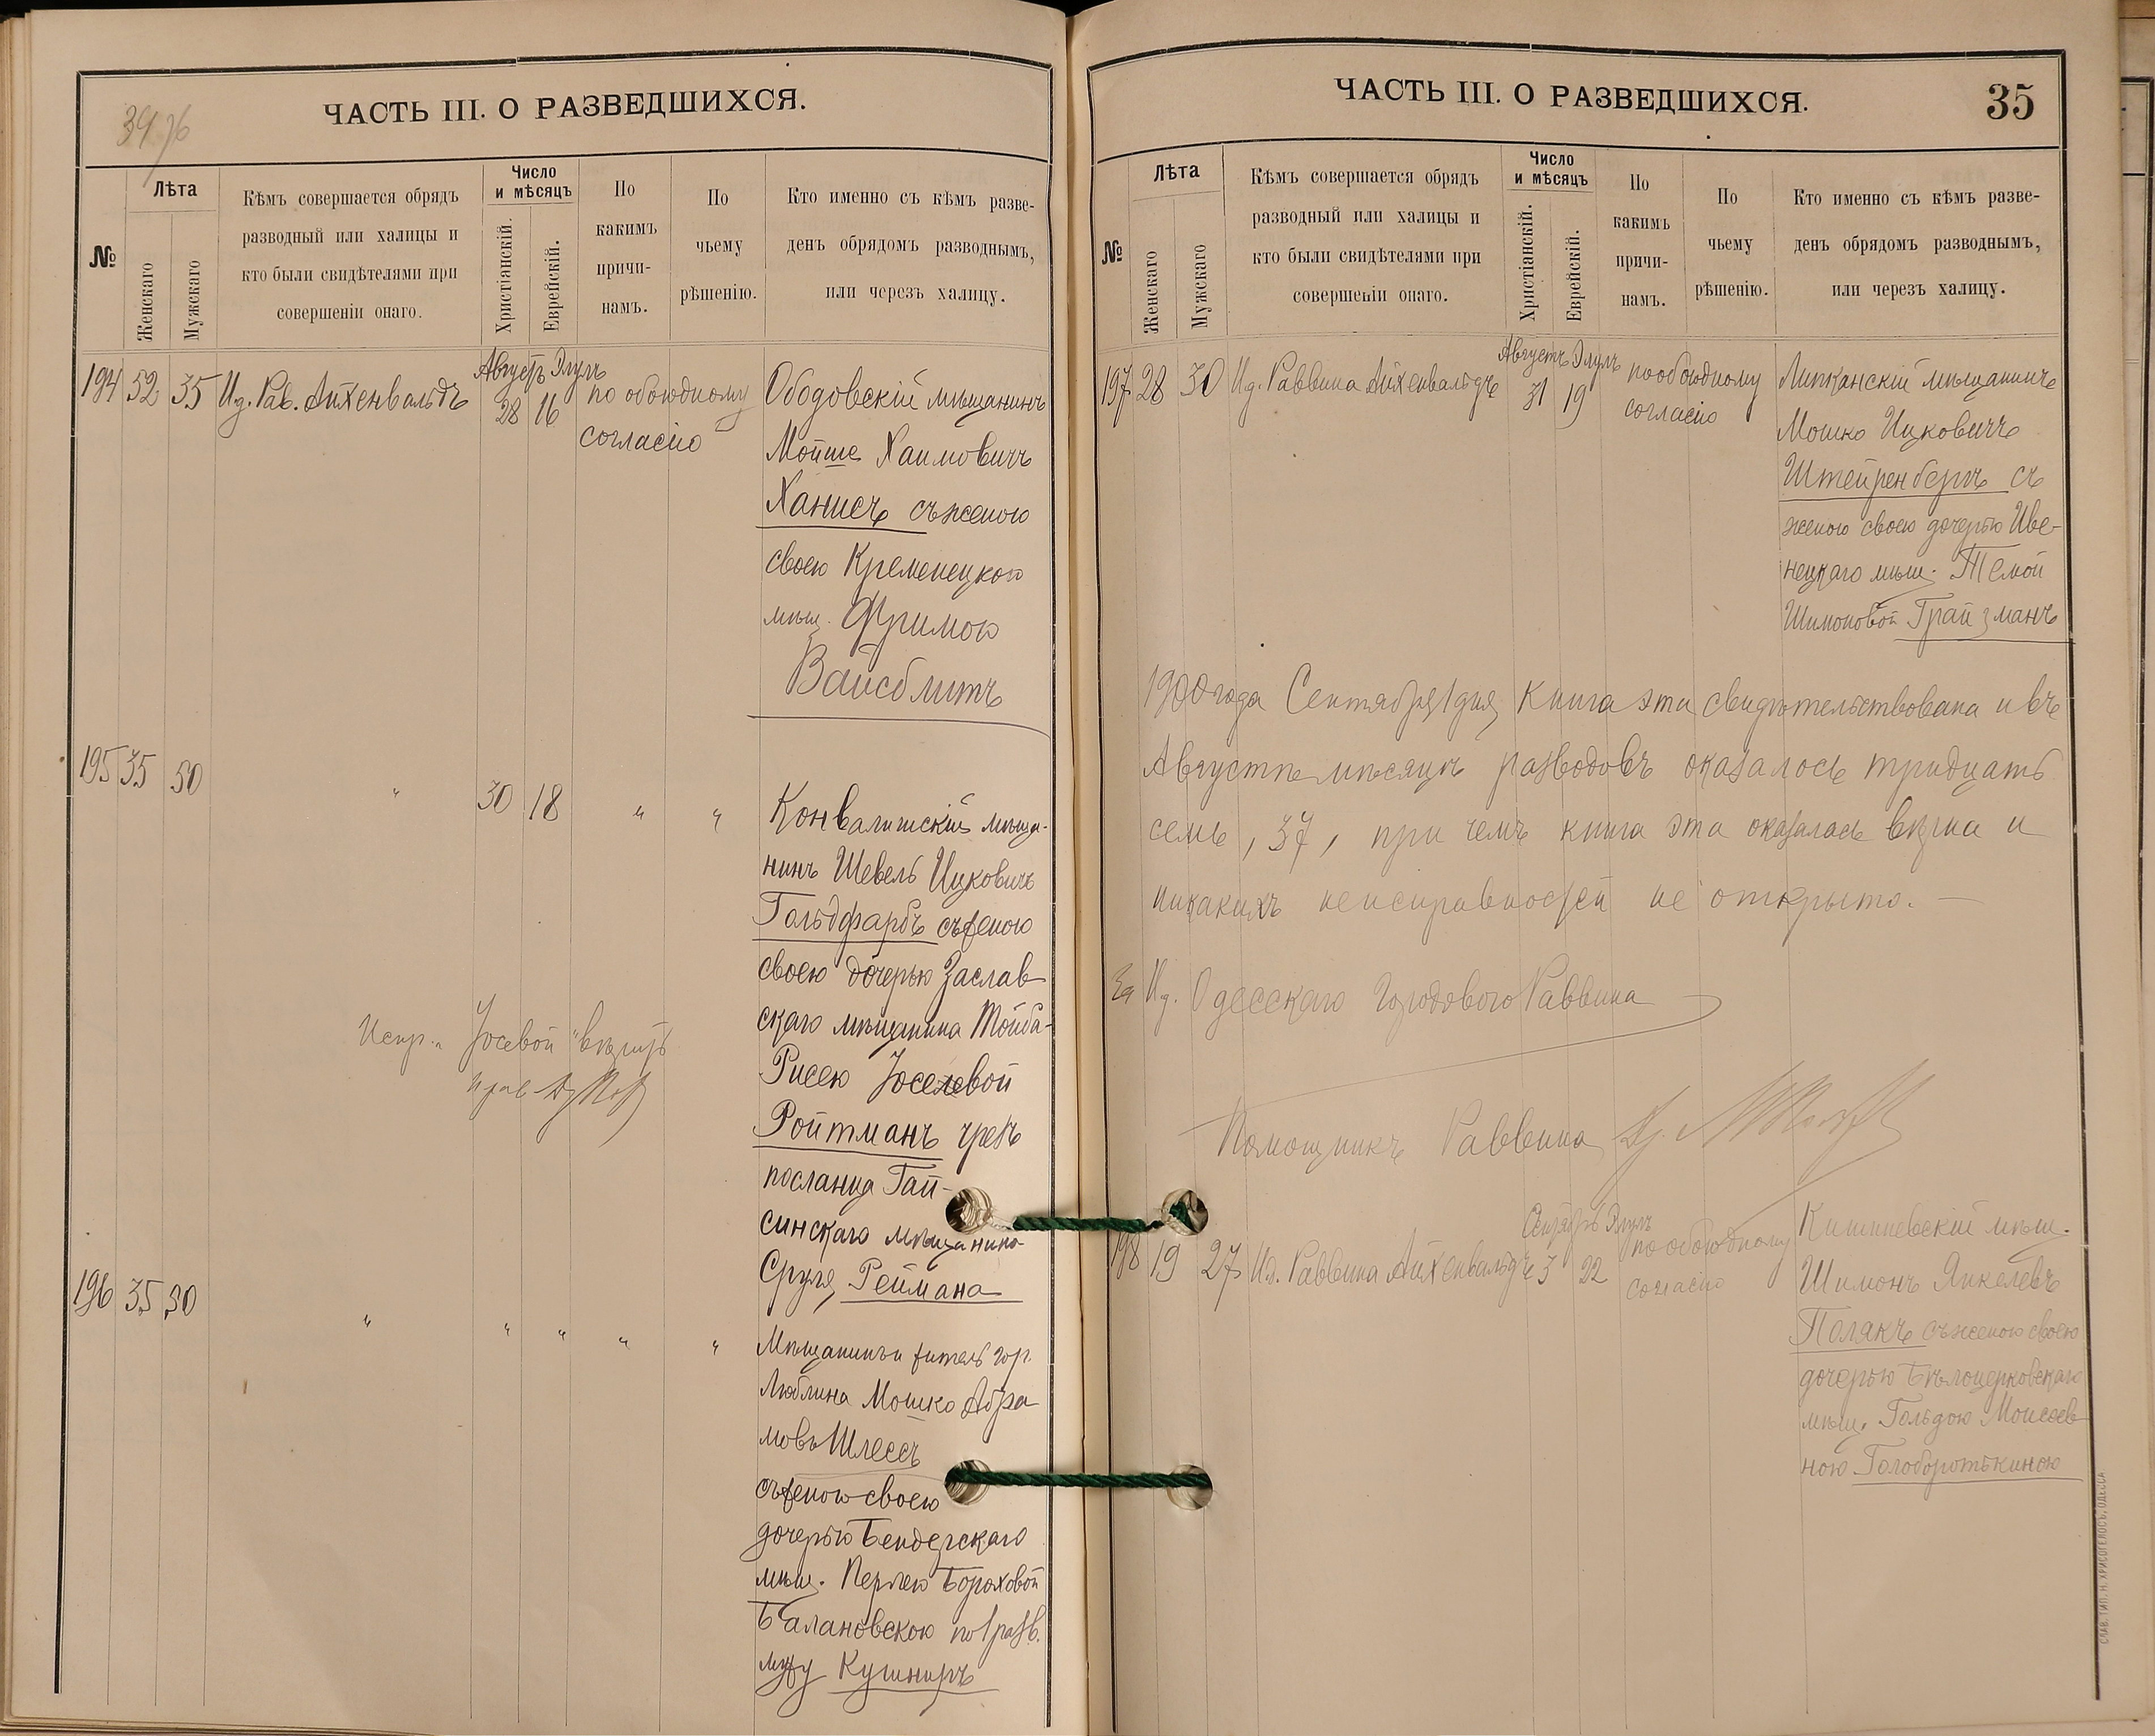 39/76
ЧАСТЬ III. О РАЗВЕДШИХСЯ.
№
Лѣта
Женскаго
Мужскаго
Кѣмъ совершается обрядъ
разводный или халицы и
кто были свидѣтелями при
совершеніи онаго.
Число
и мѣсяцъ
Христіанскій.
Еврейскій.
По
какимъ
причи-
намъ.
По
чьему
рѣшенію.
Кто именно съ кѣмъ разве-
денъ обрядомъ разводнымъ,
или черезъ халицу.
Августъ Элулъ
194 52 35 Ид. Рав. Айхенвальдъ 28 16 по обоюдному
согласію
Ободовскій мѣщанинъ
Мойше Хаимовичъ
Ханисъ съ женою
своею Кременецкою
мѣщ. Фримою
Вайсблитъ
195 35 50 " 30 18 " "
Конвалишскій мѣща-
нинъ Шевель Ицковичъ
Гольдфарбъ съ женою
своею дочерью Заслав-
скаго мѣщанина Тойба-
Рисею Іоселевой
Ройтманъ чрезъ
посланца Гай-
синскаго мѣщанина
Сруля Реймана
Испр. " Іосевой " вѣрить
196 35 30 " " " " "
Мѣщанинъ и житель гор.
Люблина Мошко Абра
мовъ Шлессъ
съ женою своею
дочерью Бендерскаго
мѣщ. Перлею Бороховой
Балановскою по 1 разв.
мужу Кушниръ
ЧАСТЬ III. О РАЗВЕДШИХСЯ.
35
№
Лѣта
Женскаго
Мужскаго
Кѣмъ совершается обрядъ
разводный или халицы и
кто были свидѣтелями при
совершеніи онаго.
Число
и мѣсяцъ
Христіанскій.
Еврейскій.
По
какимъ
причи-
намъ.
По
чьему
рѣшенію.
Кто именно съ кѣмъ разве-
денъ обрядомъ разводнымъ,
или черезъ халицу.
Августъ Элулъ
197 28 30 Ид. Раввина Айхенвальдъ 31 19 по обоюдному
согласію
Липканскій мѣщанинъ
Мошко Ицковичъ
Штейренбергъ съ
женою своею дочерью Иве-
нецкаго мѣщ. Темой
Шимоновой Грайзманъ
1900 года Сентября 1 дня, книга эта свидѣтельствована и въ
Августѣ мѣсяцѣ разводовъ оказалось тридцать
семь, 37, при чемъ книга эта оказалась вѣрна и
никакихъ неисправностей не открыто. —
За Ид. Одесскаго Городового Раввина
Помощникъ Раввина Др.
Сентябрь Элулъ
198 19 27 Ид. Раввина Айхенвальдъ 3 22 по обоюдному
согласію
Кишиневскій мѣщ.
Шимонъ Янкелевъ
Полякъ съ женою своею
дочерью Бѣлоцерковскаго
мѣщ. Гольдою Моисеев
ною Голоборотькиною
СЛАВ. ТИП. Н. ХРИСОГЕЛОСЪ, ОДЕССА